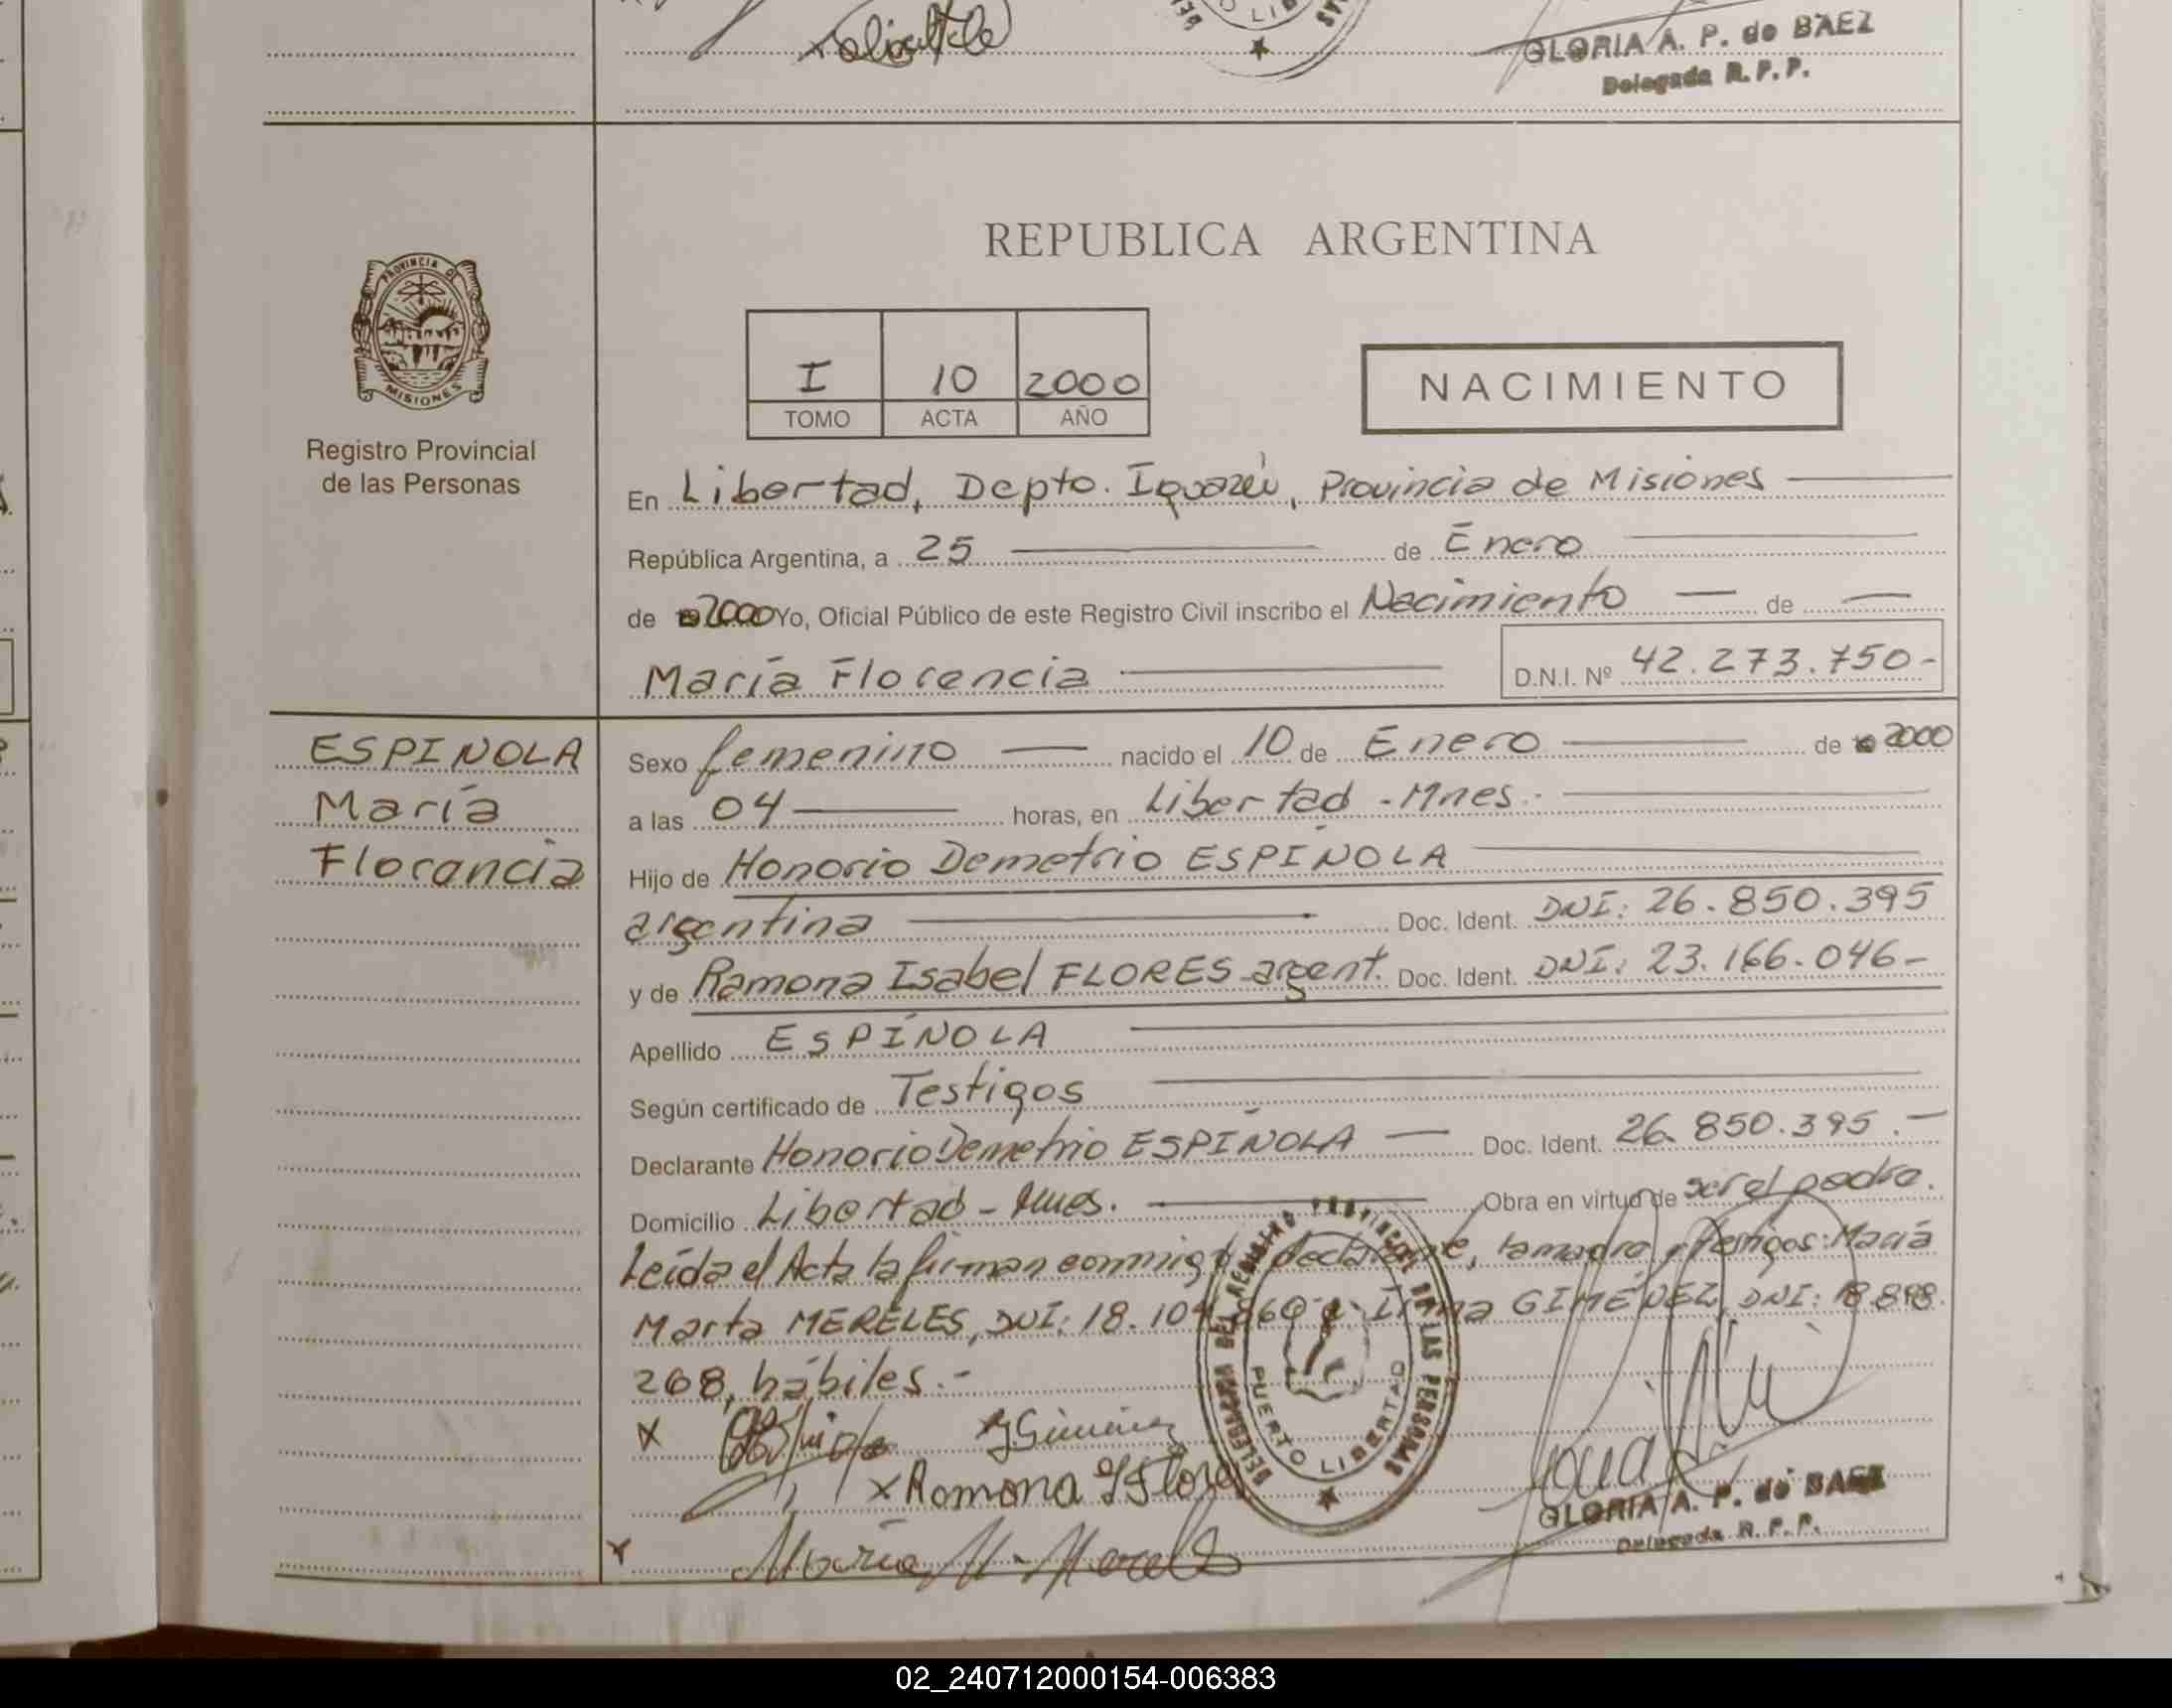 GLORIA A. P. de BAEZ
Delegada R. P. P.
PROVINCIA DE
MISIONES
Registro Provincial
de las Personas
REPUBLICA ARGENTINA
I 10 2000
TOMO ACTA AÑO
NACIMIENTO
En Libertad, Depto. Iguazú, Provincia de Misiones
República Argentina, a 25 de Enero
de 2000 Yo, Oficial Público de este Registro Civil inscribo el Nacimiento de
María Florencia D.N.I. Nº 42.273.750-
ESPINOLA
María
Florencia
Sexo femenino nacido el 10 de Enero de 2000
a las 04 horas, en Libertad - Mnes.-
Hijo de Honorio Demetrio ESPÍNOLA
argentina Doc. Ident. DNI: 26.850.395
y de Ramona Isabel FLORES argent. Doc. Ident. DNI: 23.166.046-
Apellido ESPÍNOLA
Según certificado de Testigos
Declarante Honorio Demetrio ESPÍNOLA Doc. Ident. 26.850.395.-
Domicilio Libertad - Mnes. Obra en virtud de ser el padre.
Leída el Acta la firman conmigo declarante, la madre y testigos: María
Marta MERELES, DNI: 18.10 60 Irma GIMÉNEZ, DNI: 18.898.
268, hábiles.-
X Giménez
x Ramona I Flores
DELEGACION DEL REGISTRO PROVINCIAL DE LAS PERSONAS
PUERTO LIBERTAD
GLORIA A. P. de BAEZ
Delegada R. P. P.
María M. Mereles
02_240712000154-006383